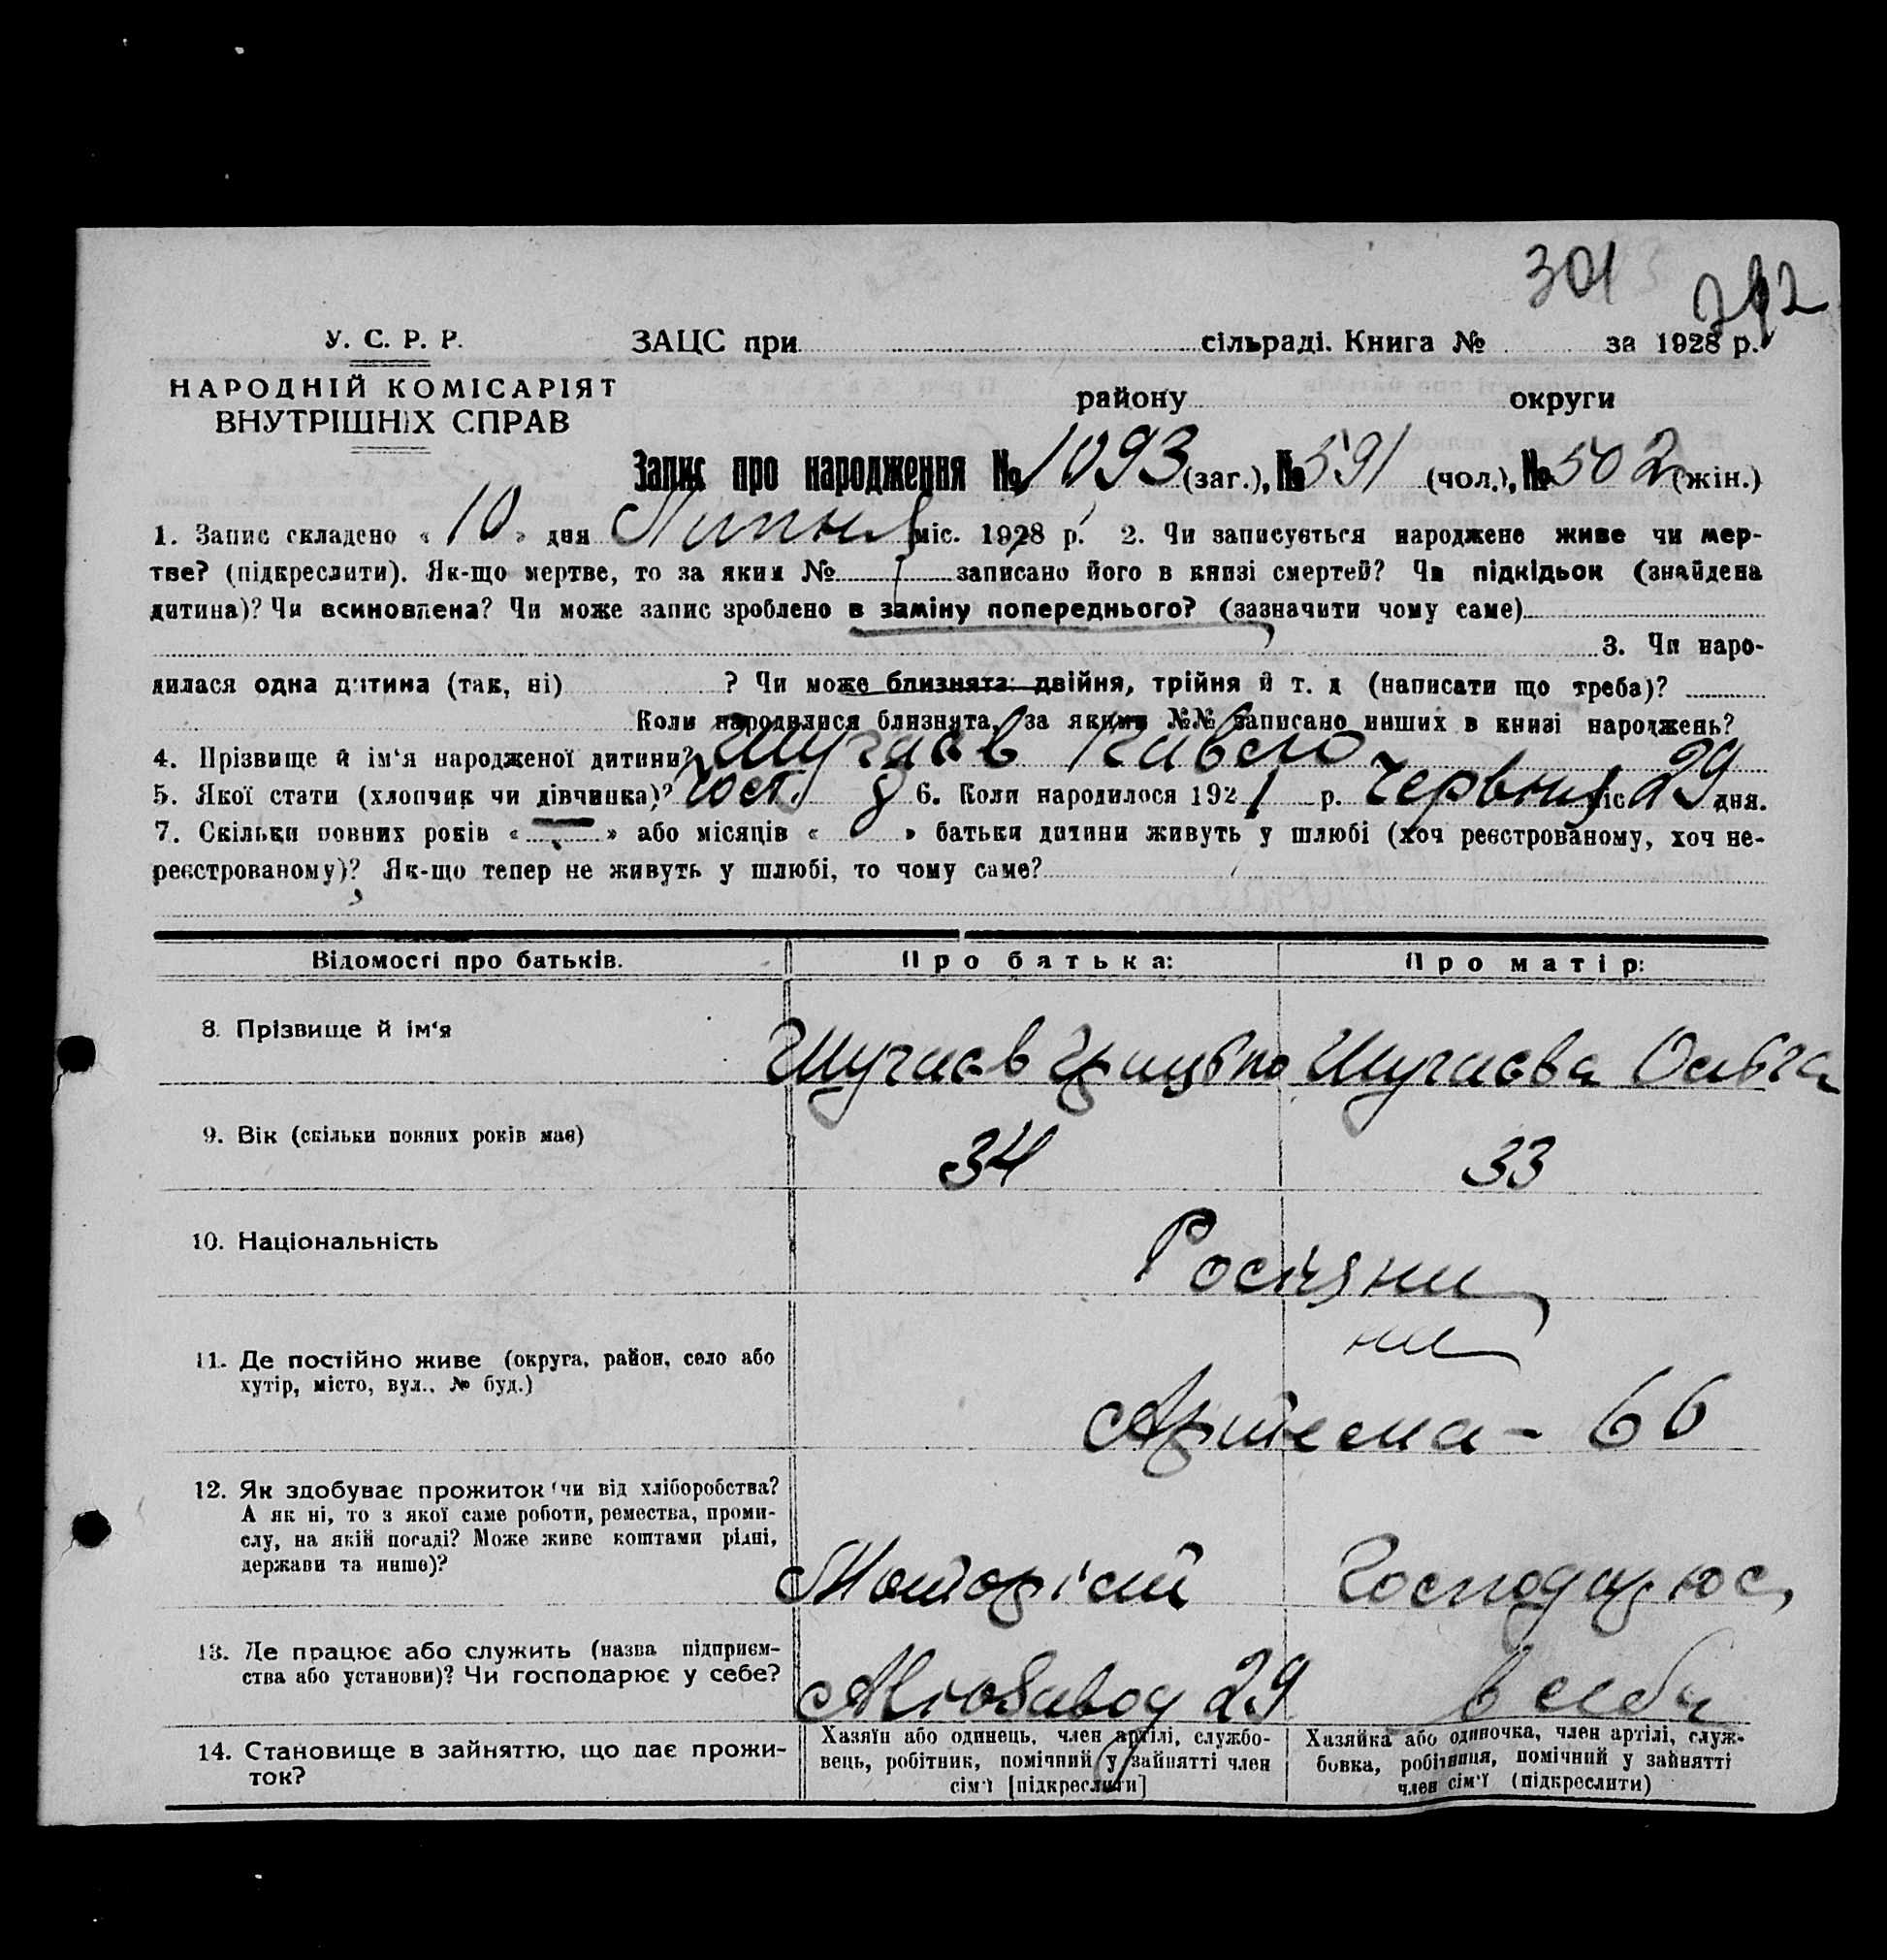 301
292
У. С. Р. Р.
ЗАЦС при сільраді. Книга № за 1928 р.
НАРОДНІЙ КОМІСАРІЯТ
ВНУТРІШНІХ СПРАВ
району округи
Запис про народження № 1093 (заг.), № 591 (чол.), № 502 (жін.)
1. Запис складено « 10 » дня Липня міс. 1928 р. 2. Чи записується народжене живе чи мер-
тве? (підкреслити). Як-що мертве, то за яким № записано його в книзі смертей? Чи підкідьок (знайдена
дитина)? Чи всиновлена? Чи може запис зроблено в заміну попереднього? (зазначити чому саме)
3. Чи наро-
дилася одна дитина (так, ні) ? Чи може близнята: двійня, трійня й т. д (написати що треба)?
Коли народилися близнята, за якими №№ записано инших в книзі народжень?
4. Прізвище й ім'я народженої дитини? Шугаєв Павело
5. Якої стати (хлопчик чи дівчинка)? 6. Коли народилося 192 р. Червня міс 29 дня.
7. Скільки повних років « — » або місяців « » батьки дитини живуть у шлюбі (хоч реєстрованому, хоч не-
реєстрованому)? Як-що тепер не живуть у шлюбі, то чому саме?
Відомості про батьків. Про батька: Про матір:
8. Прізвище й ім'я Шугаєв Шугаєва Ольга
9. Вік (скільки повних років має) 34 33
10. Національність Росіяни
ни
11. Де постійно живе (округа, район, село або
хутір, місто, вул., № буд.) Артема - 66
12. Як здобуває прожиток (чи від хліборобства?
А як ні, то з якої саме роботи, ремества, проми-
слу, на якій посаді? Може живе коштами рідні,
держави та инше)? Моторіст Господарює
13. Де працює або служить (назва підприєм-
ства або установи)? Чи господарює у себе? 29 в себе
14. Становище в зайняттю, що дає прожи-
ток?
Хазяїн або одинець, член артілі, службо-
вець, робітник, помічний у зайнятті член
сім'ї [підкреслити]
Хазяйка або одиночка, член артілі, служ-
бовка, робітниця, помічний у зайнятті
член сім'ї (підкреслити)